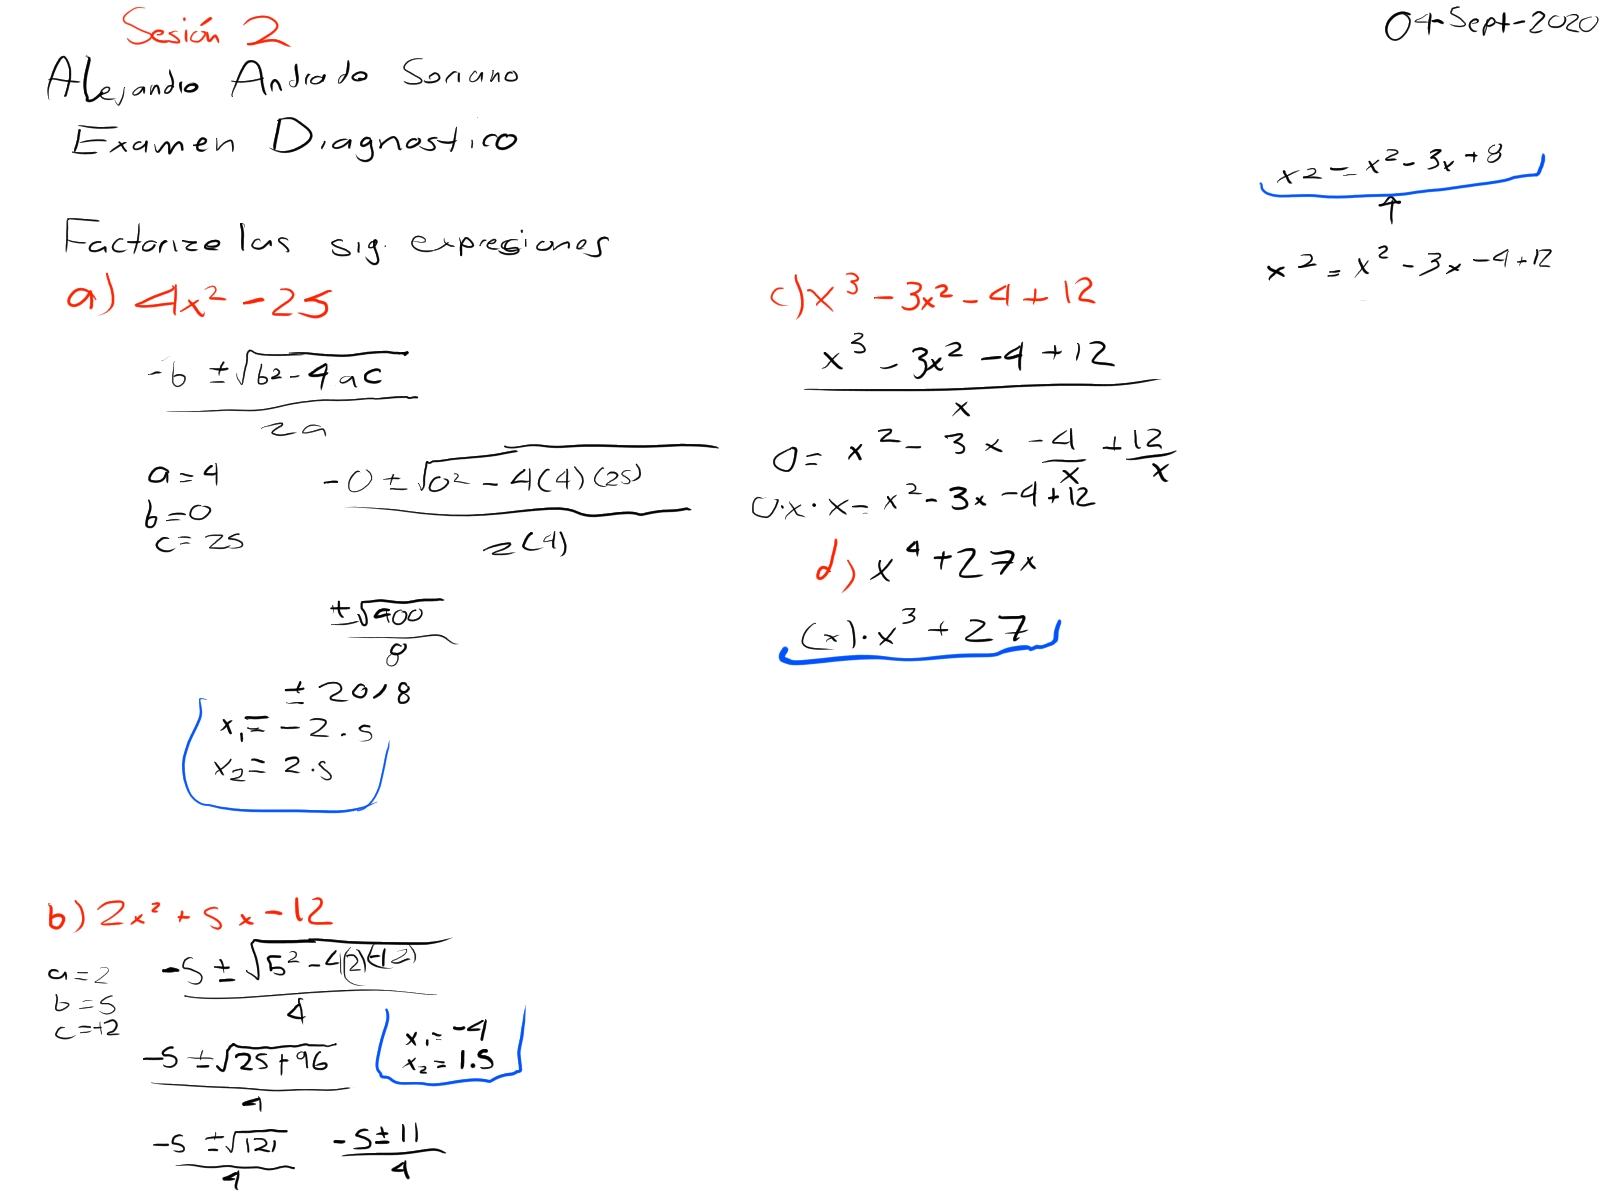 Sesión 2
04-Sept-2020
Alejandro Andrado Soriano
Examen Diagnostico
Factorize las sig. expresiones
a) 4x² - 25
-b ± √b2 - 4ac
2a
a = 4
b = 0
c = 25
-0 ± √0² - 4(4)(25)
2(4)
± √400
8
± 20/8
x₁ = -2.5
x₂ = 2.5
b) 2x² + 5x - 12
a = 2
b = 5
c = -12
-5 ± √5² - 4(2)(-12)
4
-5 ± √25 + 96
4
x₁ = -4
x₂ = 1.5
-5 ± √121
4
-5 ± 11
4
c) x³ - 3x² - 4 + 12
x³ - 3x² - 4 + 12
x
0 = x² - 3x - 4/x + 12/x
0·x·x = x² - 3x - 4 + 12
d) x⁴ + 27x
(x)·x³ + 27
x2 = x² - 3x + 8
4
x2 = x² - 3x - 4 + 12